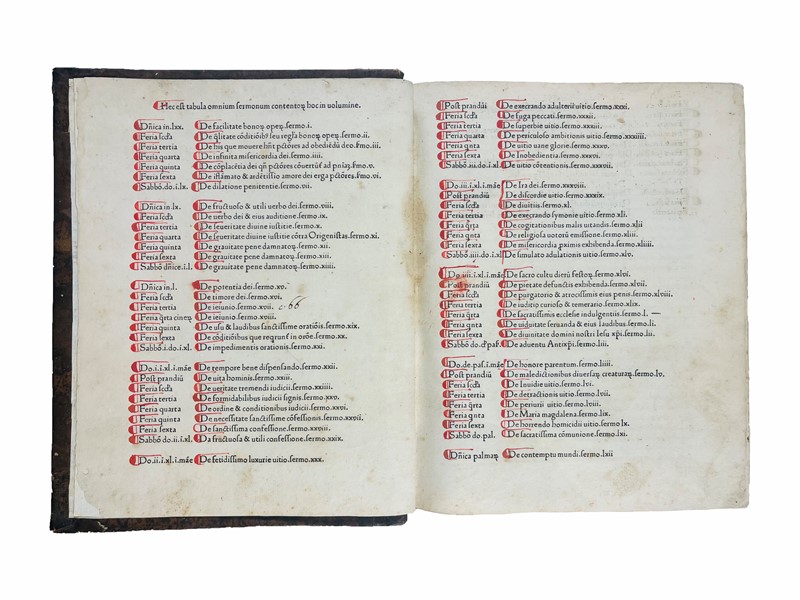 Hec est tabula omnium sermonum contentoꝝ hoc in uolumine.
Dñica in.lxx. De facilitate bonoꝝ opeꝝ.sermo.i.
Feria scďa De q̃litate cõditiõib⁹ seu regľa bonoꝝ opeꝝ.sermo.ii.
Feria tertia De his que mouere hñt pctõres ad obediẽdũ deo.ſmo.iii.
Feria quarta De infinita misericordia dei.sermo.iiii.
Feria quinta De cõplacẽtia dei qñ pctõres cõuertũt ad pniaꝫ.ſmo.v.
Feria sexta De iflãmato & ardẽtissio amore dei erga pctõres.ſmo.vi.
Sabbõ.do.i.lx. De dilatione penitentie.sermo.vii.
Dñica in.lx. De fructuoso & utili uerbo dei.sermo.viii.
Feria scďa De uerbo dei & eius auditione.sermo.ix.
Feria tertia De seueritate diuine iustitie.sermo.x.
Feria quarta De seueritate diuine iustitie cõtra Origenistas.sermo.xi.
Feria quinta De grauitate pene damnatoꝝ.sermo.xii.
Feria sexta De grauitate pene damnatoꝝ.sermo.xiii.
Sabbõ dñice.i.l. De grauitate pene damnatoꝝ.sermo.xiiii.
Dñica in.l. De potentia dei.sermo.xv.
Feria scďa De timore dei.sermo.xvi.
Feria tertia De ieiunio.sermo.xvii. c. 66
Feria q̃rta cineꝝ De ieiunio.sermo.xviii.
Feria quinta De usu & laudibus sanctissime oratiõis.sermo.xix.
Feria sexta De cõditiõibus que reqrunť in orõe.sermo.xx.
Sabbõ.i.do.i.xl. De impedimentis orationis.sermo.xxi.
Do.i.i.xl.i.mãe De tempore bene dispensando.sermo.xxii.
Post prandiũ De uita hominis.sermo.xxiii.
Feria scďa De ueritate tremendi iudicii.sermo.xxiiii.
Feria tertia De formidabilibus iudicii signis.sermo.xxv.
Feria quarta De ordine & conditionibus iudicii.sermo.xxvi.
Feria quinta De necessitate sanctissime cõfessionis.sermo.xxvii.
Feria sexta De sanctissima confessione.sermo.xxviii.
Sabbõ do.ii.i.xl. Da fructuosa & utili confessione.sermo.xxix.
Do.ii.i.xl.i.mãe De fetidissimo luxurie uitio.sermo.xxx.
Post prandiũ De execrando adulterii uitio.sermo.xxxi.
Feria scďa De fuga peccati.sermo.xxxii.
Feria tertia De superbie uitio.sermo.xxxiii.
Feria quarta De periculoso ambitionis uitio.sermo.xxxiiii.
Feria qnta De uitio uane glorie.sermo.xxxv.
Feria sexta De Inobedientia.sermo.xxxvi.
Sabbõ.iii.do.i.xl. De uitio cõtentionis.sermo.xxxvii.
Do.iii.i.xl.i.mãe De Ira dei.sermo.xxxviii.
Post prandiũ De discordie uitio.sermo.xxxix.
Feria scďa De diuitiis.sermo.xl.
Feria tertia De execrando symonie uitio.sermo.xli.
Feria q̃rta De cogitationibus malis uitandis.sermo.xlii.
Feria qnta De religiosa uotoꝝ emissione.sermo.xliii.
Feria sexta De misericordia pximis exhibenda.sermo.xliiii.
Sabbõ.iiii.do.i.xl De simulato adulationis uitio.sermo.xlv.
Do.iiii.i.xl.i.mãe De sacro cultu dierũ festoꝝ.sermo.xlvi.
Post prandiũ De pietate defunctis exhibenda.sermo.xlvii.
Feria scďa De purgatorio & atrocissimis eius penis.sermo.xlviii.
Feria tertia De iuditio curioso & temerario.sermo.xlix.
Feria q̃rta De sacratissimis ecclesie indulgentiis.sermo.l.
Feria qnta De uiduitate seruanda & eius laudibus.sermo.li.
Feria sexta De diuinitate domini nostri Iesu xp̃i.sermo.lii.
Sabbõ do.d'pas̃. De aduentu Antixp̃i.sermo.liii.
Do.de.pas̃.i.mãe De honore parentum.sermo.liiii.
Post prandiũ De maledictionibus diuersaꝝ creaturaꝝ.sermo.lv.
Feria scďa De Inuidie uitio.sermo.lvi.
Feria tertia De detractionis uitio.sermo.lvii.
Feria q̃rta De periurii uitio.sermo.lviii.
Feria qnta De Maria magdalena.sermo.lix.
Feria sexta De horrendo homicidii uitio.sermo.lx.
Sabbõ do.pal. De sacratissima cõmunione.sermo.lxi.
Dñica palmaꝝ De contemptu mundi.sermo.lxii